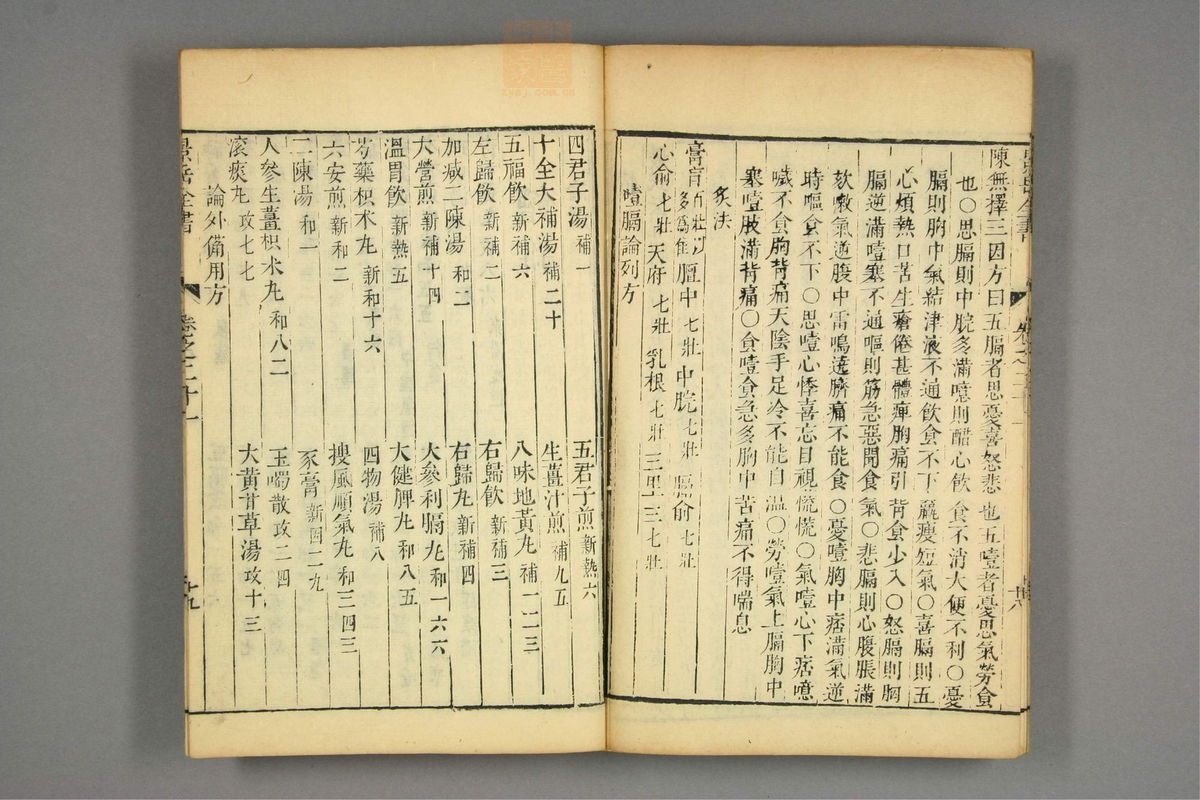 陳無擇三因方曰五膈者思憂喜怒悲也五噎者憂思氣勞食
也○思膈則中脘多滿噫則醋心飲食不消大便不利○憂
膈則胸中氣結津液不通飲食不下羸瘦短氣○喜膈則五
心煩熱口苦生瘡倦甚體痺胸痛引背食少入○怒膈則胸
膈逆滿噎塞不通嘔則筋急惡聞食氣○悲膈則心腹脹滿
欬嗽氣逆腹中雷鳴遶臍痛不能食○憂噎胸中痞滿氣逆
時嘔食不下○思噎心悸喜忘目視𥆨𥆨○氣噎心下痞噫
噦不食胸背痛天陰手足冷不能自溫○勞噎氣上膈胸中
塞噎肢滿背痛○食噎食急多胸中苦痛不得喘息
灸法
膏肓百壯以多為佳 膻中七壯 中脘七壯 膈俞七壯
心俞七壯 天府七壯 乳根七壯 三里三七壯
噎膈論列方
景岳全書 卷之二十一
四君子湯補一 五君子煎新熱六
十全大補湯補二十 生薑汁煎補九五
五福飲新補六 八味地黃丸補一二三
左歸飲新補二 右歸飲新補三
加減二陳湯和二 右歸丸新補四
大營煎新補十四 人參利膈丸和一六六
溫胃飲新熱五 大健脾丸和八五
芍藥枳朮丸新和十六 四物湯補八
六安煎新和二 搜風順氣丸和三四三
二陳湯和一 豕膏新因二九
人參生薑枳朮丸和八二 玉燭散攻二四
滾痰丸攻七七 大黃甘草湯攻十三
論外備用方
景岳全書 卷之二十一
zysj.com.cn